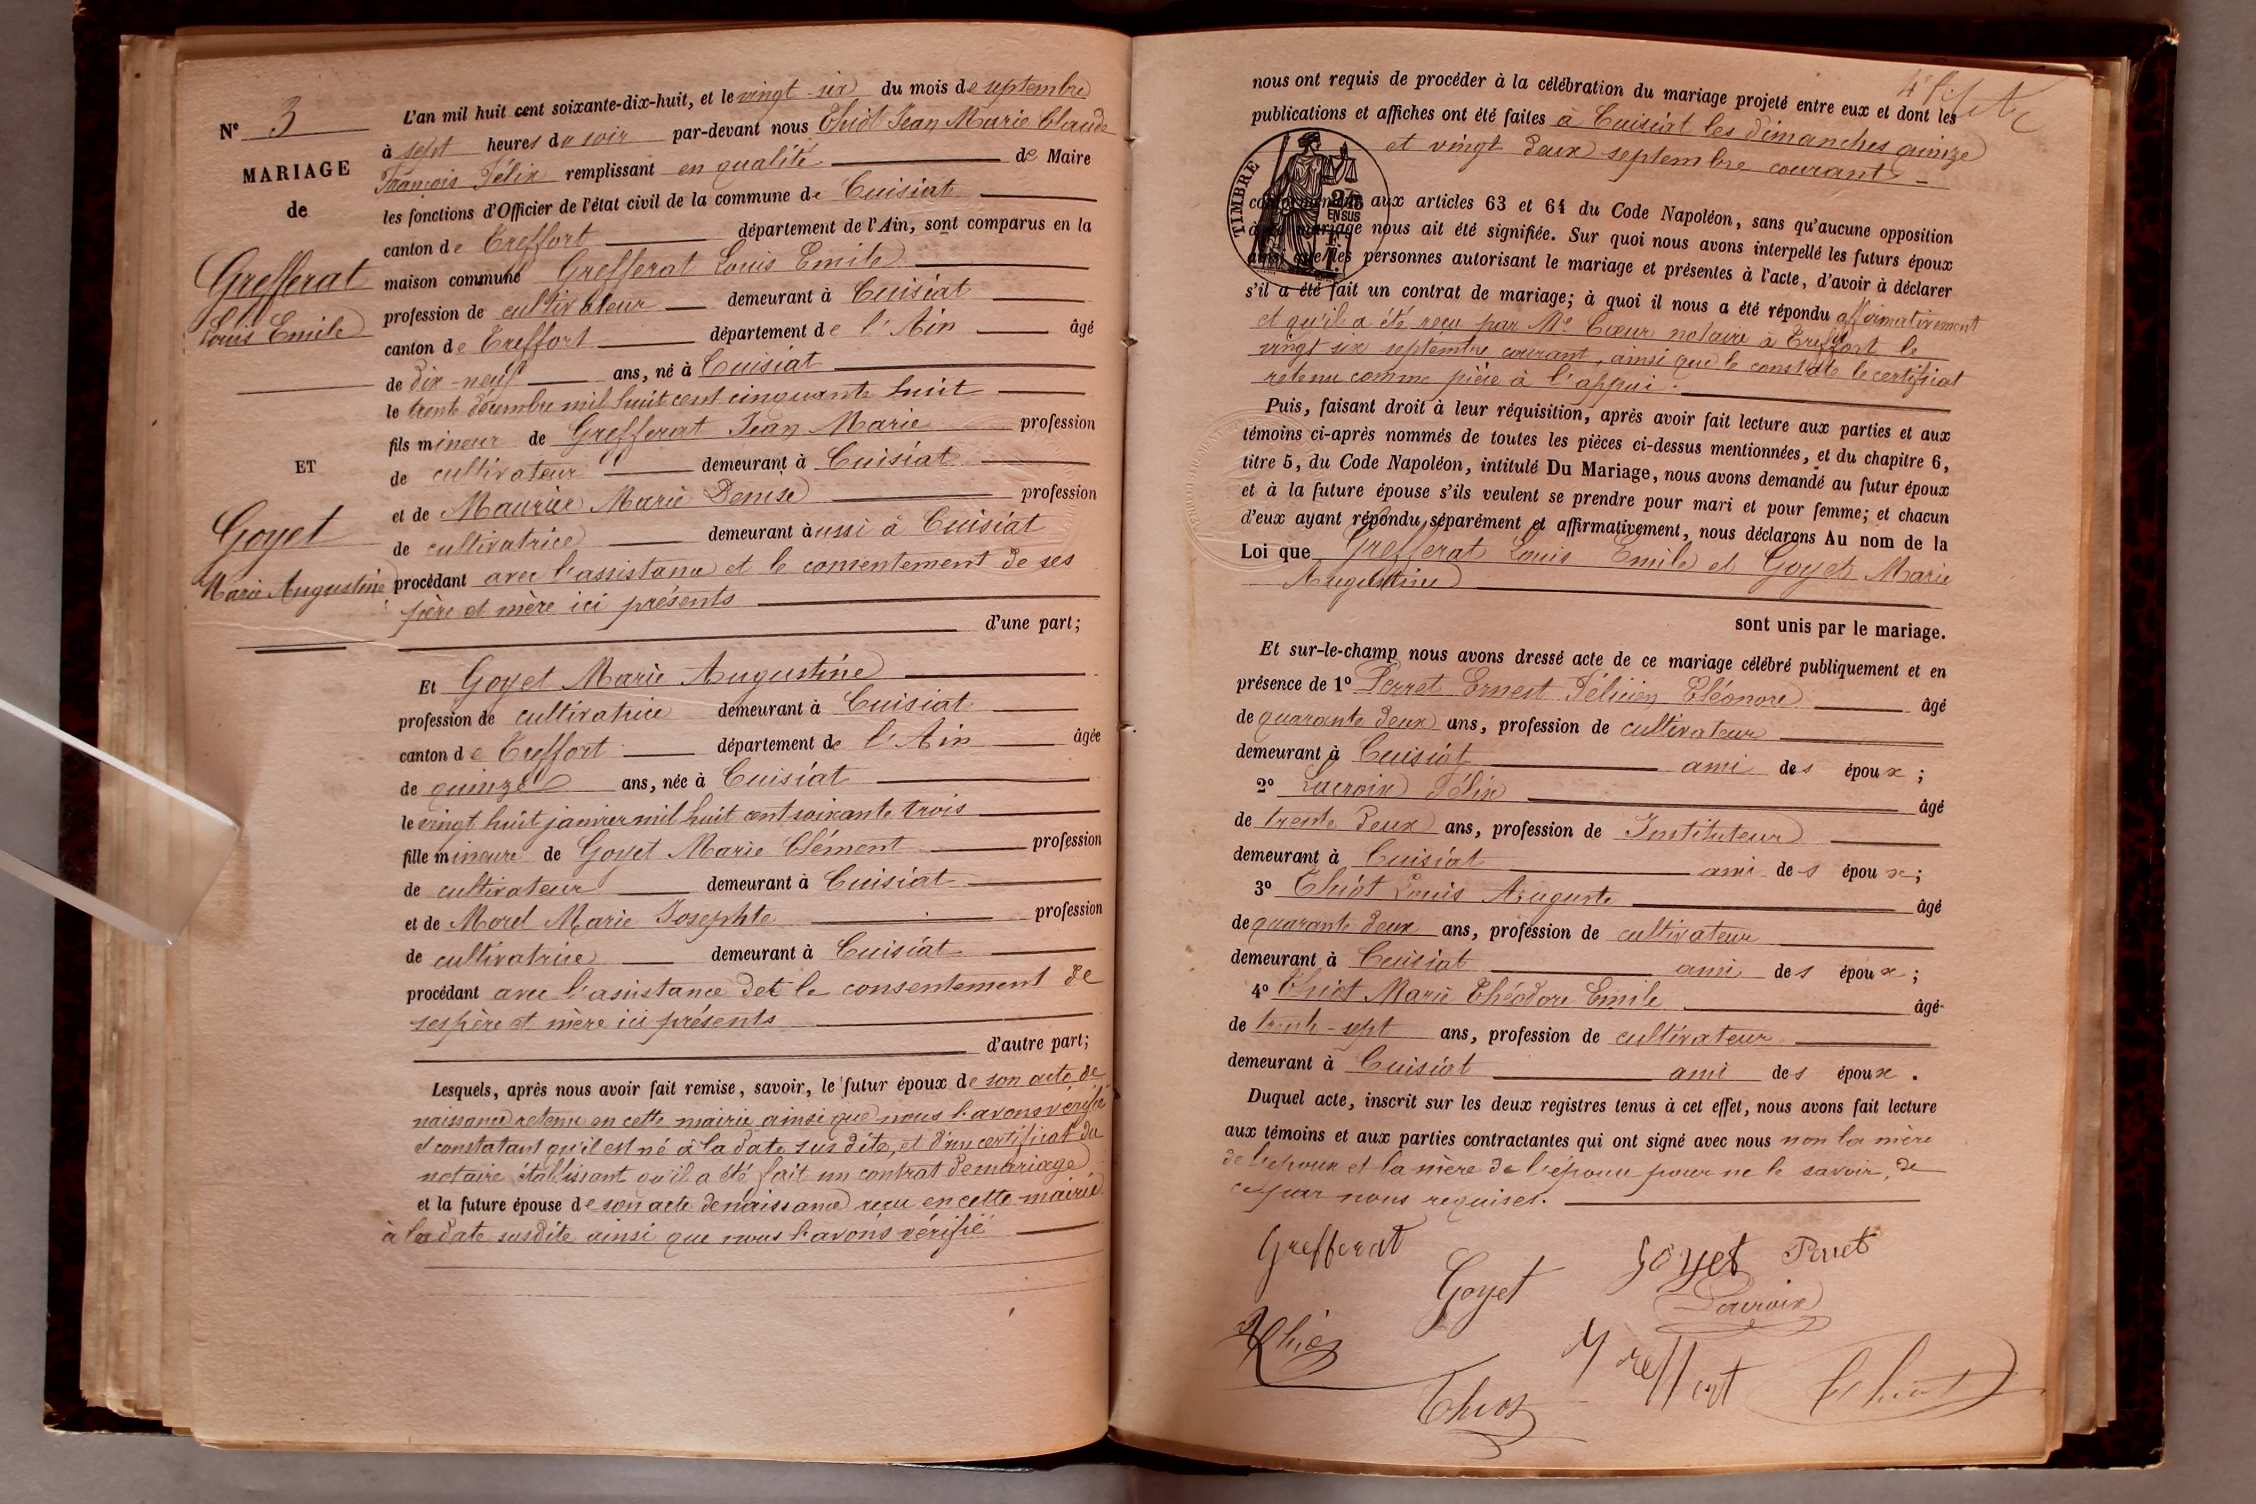 N° 3
MARIAGE
de
Grefferat
Louis Emile
ET
Goyet
Marie Augustine
L'an mil huit cent soixante-dix-huit, et le vingt-six du mois de septembre
à sept heures du soir par-devant nous Thiot Jean Marie Claude
François Félix remplissant en qualité de Maire
les fonctions d'Officier de l'état civil de la commune de Cuisiat
canton de Treffort département de l'Ain, sont comparus en la
maison commune Grefferat Louis Emile
profession de cultivateur demeurant à Cuisiat
canton de Treffort département de l'Ain âgé
de dix-neuf ans, né à Cuisiat
le trente décembre mil huit cent cinquante huit
fils mineur de Grefferat Jean Marie profession
de cultivateur demeurant à Cuisiat
et de Maurier Marie Denise profession
de cultivatrice demeurant aussi à Cuisiat
procédant avec l'assistance et le consentement de ses
père et mère ici présents
d'une part;
Et Goyet Marie Augustine
profession de cultivatrice demeurant à Cuisiat
canton de Treffort département de l'Ain âgée
de quinze ans, née à Cuisiat
le vingt huit janvier mil huit cent soixante trois
fille mineure de Goyet Marie Clément profession
de cultivateur demeurant à Cuisiat
et de Morel Marie Josephte profession
de cultivatrice demeurant à Cuisiat
procédant avec l'assistance et le consentement de
ses père et mère ici présents
d'autre part;
Lesquels, après nous avoir fait remise, savoir, le futur époux de son acte de
naissance retenu en cette mairie ainsi que nous l'avons vérifié
et constatant qu'il est né à la date sus dite, et d'un certificat du
notaire établissant qu'il a été fait un contrat de mariage
et la future épouse de son acte de naissance reçu en cette mairie
à la date susdite ainsi que nous l'avons vérifié
nous ont requis de procéder à la célébration du mariage projeté entre eux et dont les
publications et affiches ont été faites à Cuisiat les dimanches quinze
et vingt deux septembre courant
TIMBRE
EN SUS
conformément aux articles 63 et 64 du Code Napoléon, sans qu'aucune opposition
à ce mariage nous ait été signifiée. Sur quoi nous avons interpellé les futurs époux
ainsi que les personnes autorisant le mariage et présentes à l'acte, d'avoir à déclarer
s'il a été fait un contrat de mariage; à quoi il nous a été répondu affirmativement
et qu'il a été reçu par Me Cœur notaire à Treffort le
vingt six septembre courant, ainsi que le constate le certificat
retenu comme pièce à l'appui.
Puis, faisant droit à leur réquisition, après avoir fait lecture aux parties et aux
témoins ci-après nommés de toutes les pièces ci-dessus mentionnées, et du chapitre 6,
titre 5, du Code Napoléon, intitulé Du Mariage, nous avons demandé au futur époux
et à la future épouse s'ils veulent se prendre pour mari et pour femme; et chacun
d'eux ayant répondu séparément et affirmativement, nous déclarons Au nom de la
Loi que Grefferat Louis Emile et Goyet Marie
Augustine
sont unis par le mariage.
Et sur-le-champ nous avons dressé acte de ce mariage célébré publiquement et en
présence de 1° Perret Ernest Félicien Eléonore âgé
de quarante deux ans, profession de cultivateur
demeurant à Cuisiat ami des époux;
2° Lacroix Félix âgé
de trente deux ans, profession de Instituteur
demeurant à Cuisiat ami des époux;
3° Thiot Louis Auguste âgé
de quarante deux ans, profession de cultivateur
demeurant à Cuisiat ami des époux;
4° Thiot Marie Théodore Emile âgé
de trente-sept ans, profession de cultivateur
demeurant à Cuisiat ami des époux.
Duquel acte, inscrit sur les deux registres tenus à cet effet, nous avons fait lecture
aux témoins et aux parties contractantes qui ont signé avec nous non la mère
de l'époux et la mère de l'épouse pour ne le savoir, de
ce par nous requises.
Grefferat Goyet Perret
Goyet
Lacroix
Thiot
Thiot
Thiot